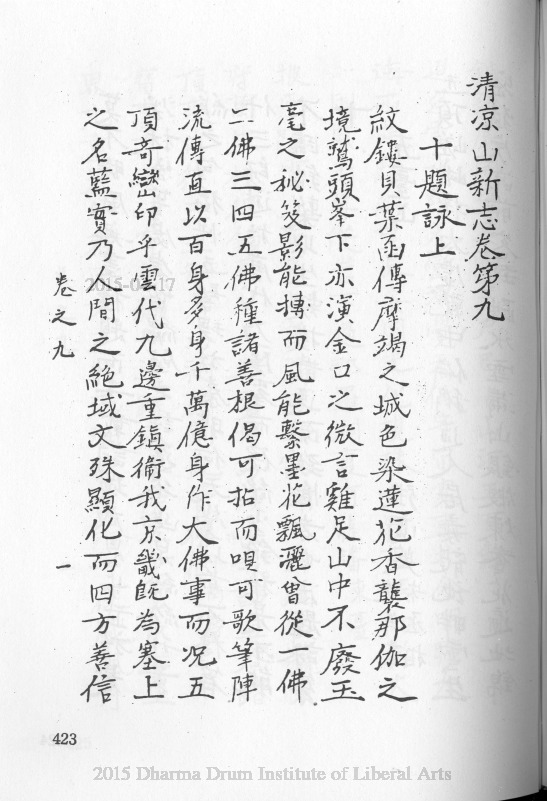 清涼山新志卷第九
十題詠上
紋鏤貝葉函傳摩竭之城色染蓮花香襲那伽之
境鷲頭峯下亦演金口之微言雞足山中不廢玉
毫之秘笈影能摶而風能繫墨花飄灑曾從一佛
二佛三四五佛種諸善根偈可拈而唄可歌筆陣
流傳直以百身多身千萬億身作大佛事而況五
頂奇巒印乎雲代九邊重鎮衛我京畿旣為塞上
之名藍實乃人間之絕域文殊顯化而四方善信
卷之九
一
423
2015 Dharma Drum Institute of Liberal Arts